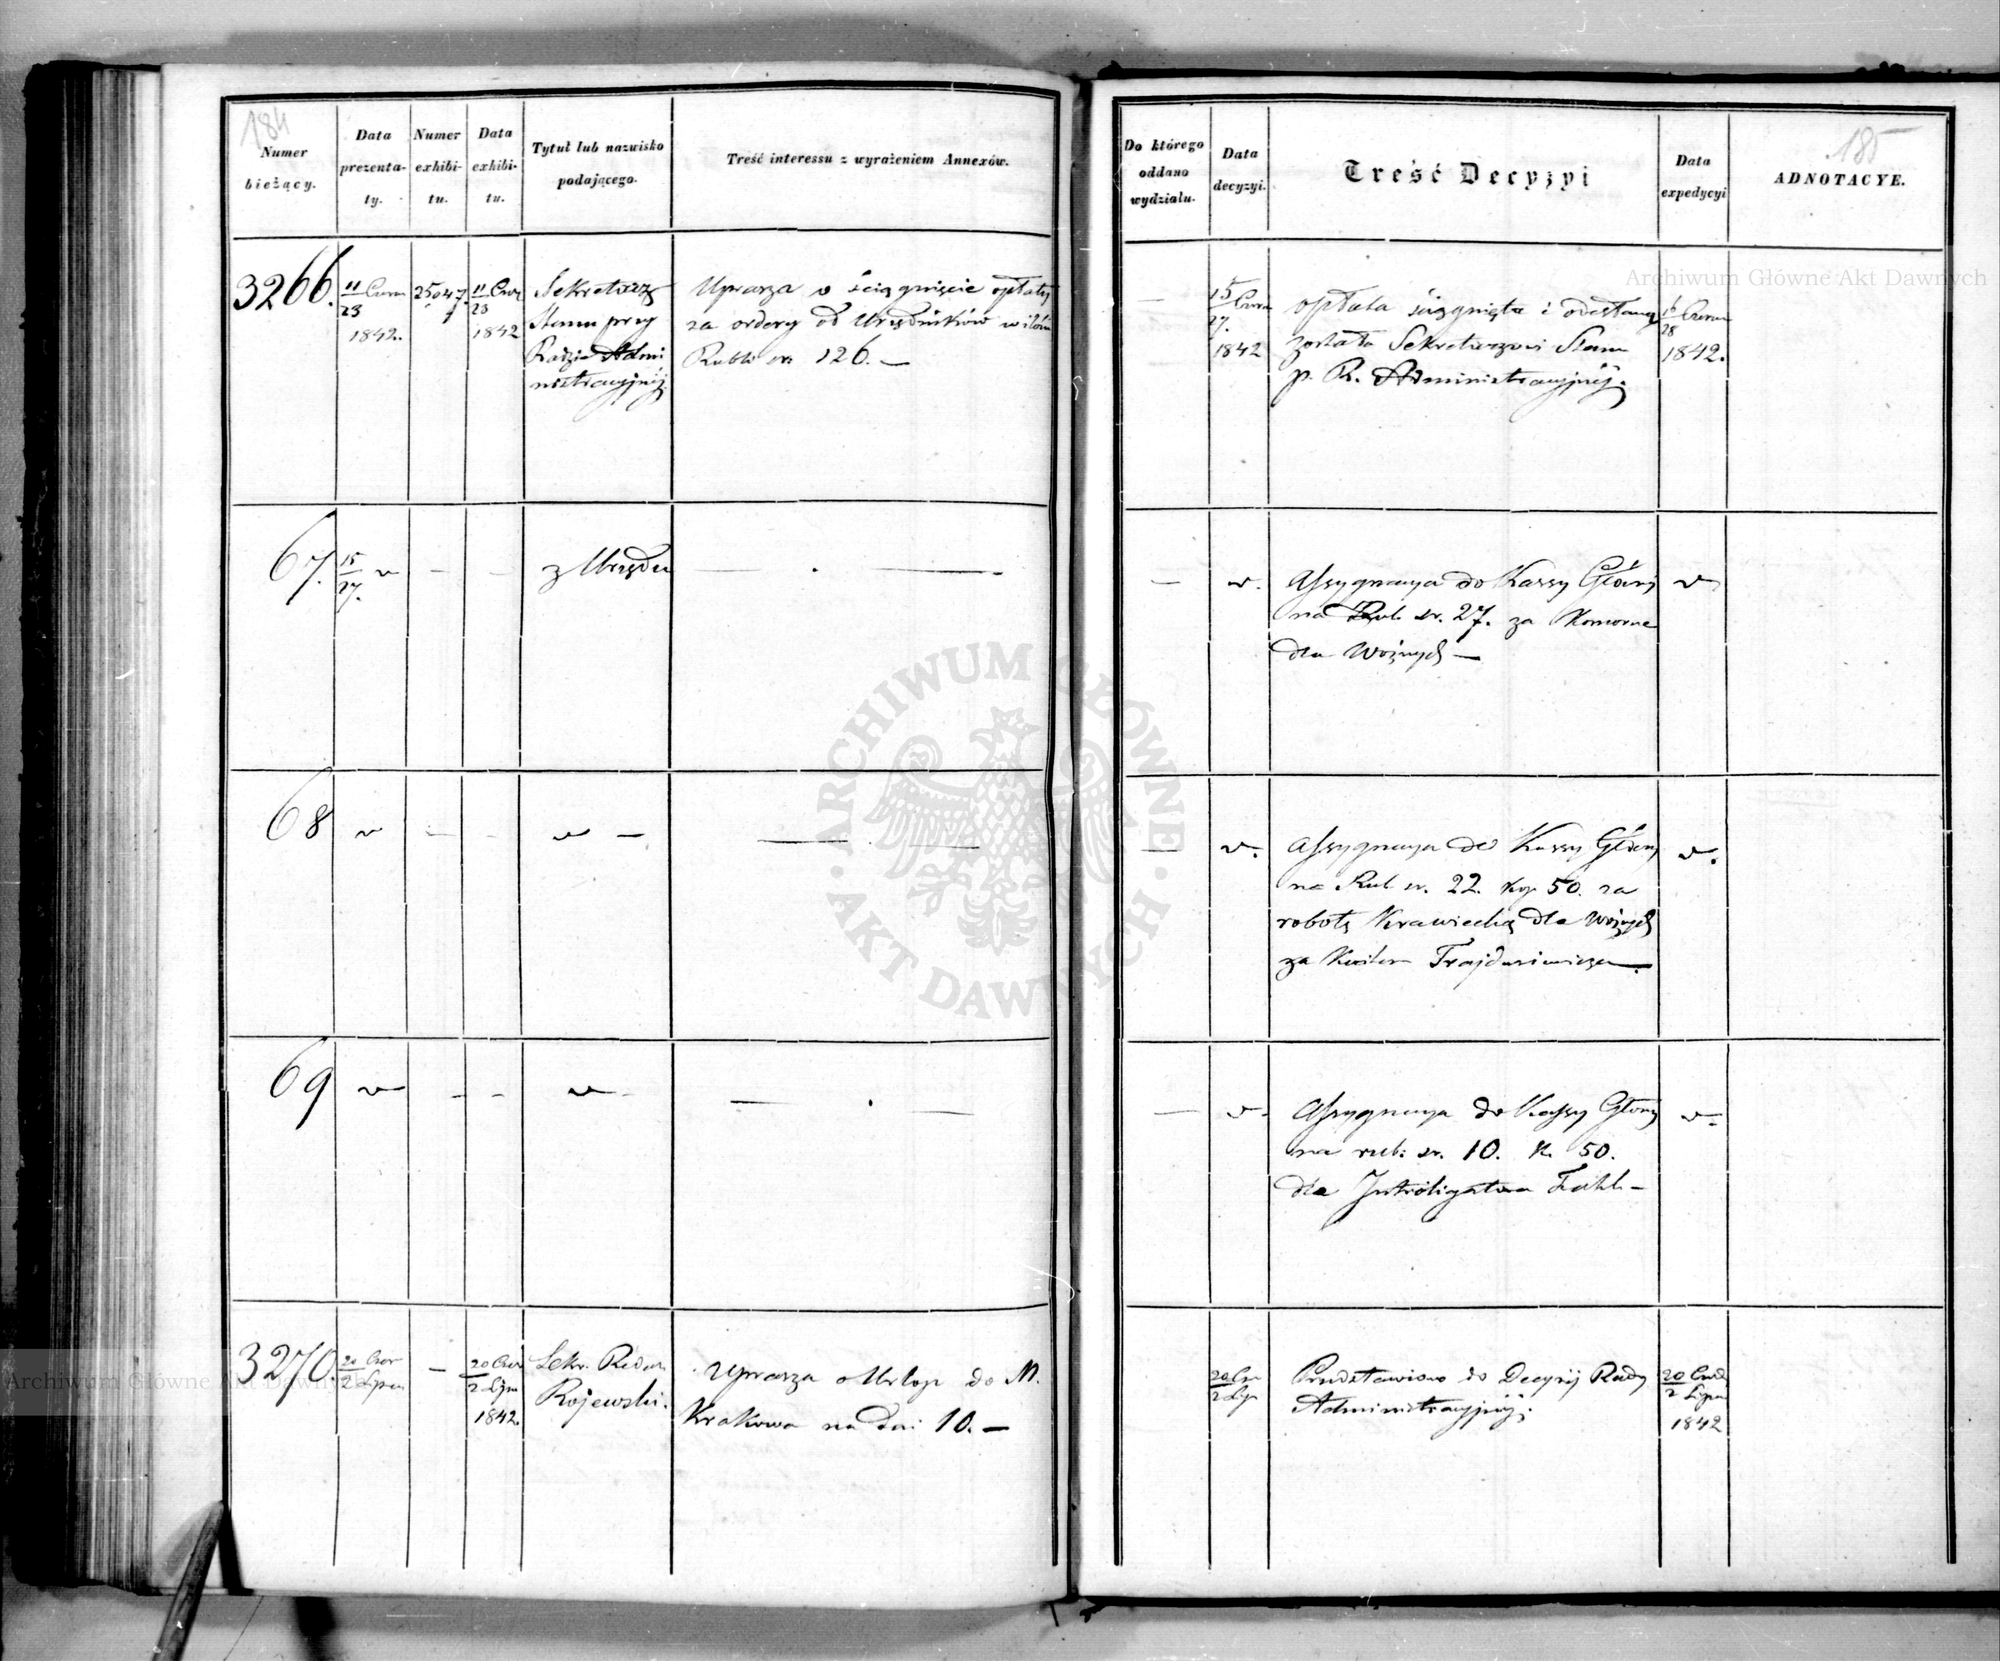 184
Numer
bieżący.
Data
prezenta-
ty.
Numer
exhibi-
tu.
Data
exhibi-
tu.
Tytuł lub nazwisko
podającego.
Treść interessu z wyrażeniem Annexów.
3266.
11/23 Czerw
1842.
25047.
11/23 Czer
1842
Sekretarz
Stanu przy
Radzie Admi
nistracyjnéj.
Uprasza o ściągnięcie opłaty
za ordery od Urzędników w ilości
Rubli sr. 126. —
67.
15/27.
z Urzędu
68
69
3270.
20 Czer
2 Lipca
—
20 Czer
2 Lipca
1842.
Sekr.
Rojewski.
Uprasza o Urlop do M.
Krakowa na dni 10. —
185
Do którego
oddano
wydziału.
Data
decyzyi.
Treść Decyzyi
Data
expedycyi
ADNOTACYE.
15/27. Czerw
1842
opłata ściągnięta i odesłaną
została Sekretarzowi Stanu
p. R. Administracyjnéj.
16/28 Czerw
1842.
Assygnacya do Kassy Głównéj
na Rub. sr. 27. za Komorne
dla Woźnych —
Assygnacya do Kassy Głównéj
na Rub sr. 22. kop 50. za
robotę Krawiecką dla Woźnych
za
Assygnacya do Kassy Głównéj
na rub: sr. 10. k. 50.
dla Introligatora
20 Cze
2 Lip
Przedstawiono do Decyzyi Rady
Administracyjnéj.
20 Czerw
2 Lipca
1842
Archiwum Główne Akt Dawnych
Archiwum Główne Akt Dawnych
ARCHIWUM GŁÓWNE
AKT DAWNYCH